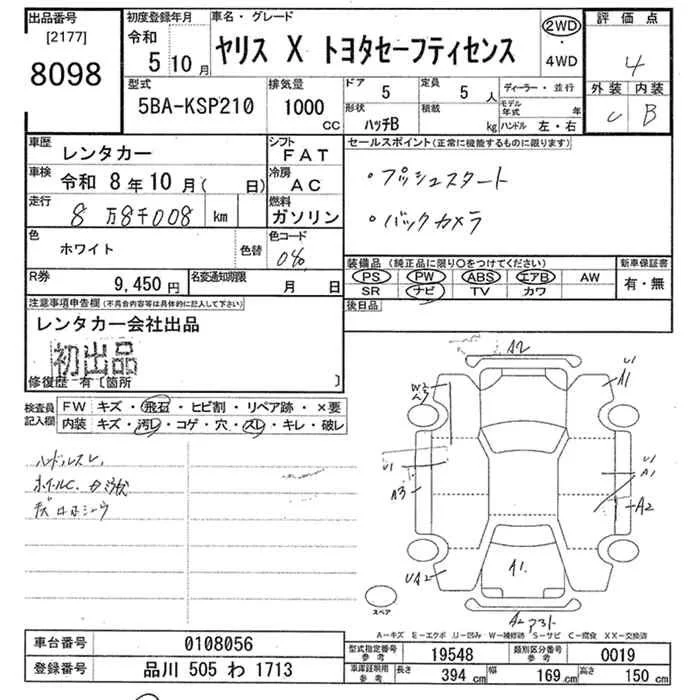 出品番号
[2177]
8098
初度登録年月
令和
5 10 月
車名・グレード
ヤリス X トヨタセーフティセンス
2WD
4WD
評価点
4
外装 内装
C B
型式
5BA-KSP210
排気量
1000
CC
ドア 5
定員 5 人
形状 ハッチB
積載 kg
ディーラー・並行
モデル年式 年
ハンドル 左・右
車歴 レンタカー
シフト FAT
車検 令和 8 年 10 月 ( 日)
冷房 AC
走行 8 万 8千008 km
燃料 ガソリン
色 ホワイト
色替
色コード 040
R券 9,450 円
名変通知期限 月 日
セールスポイント(正常に機能するものに限ります)
・プッシュスタート
・バックカメラ
装備品 (純正品に限り○をつけてください)
PS PW ABS エアB AW
SR ナビ TV カワ
新車保証書
有・無
後日品
注意事項申告欄(不具合内容等は具体的に記入して下さい)
レンタカー会社出品
初出品
修復歴 有〔箇所 〕
検査員記入欄
FW キズ・飛石・ヒビ割・リペア跡・×要
内装 キズ・汚レ・コゲ・穴・スレ・キレ・破レ
A2
U1
A1
W2
U1
A3
U1
A1
A2
A1
UA2
A2
スペア
A-キズ E-エクボ U-凹み W-補修跡 S-サビ C-腐食 XX-交換済
車台番号 0108056
登録番号 品川 505 わ 1713
型式指定番号 参考 19548
類別区分番号 参考 0019
車庫証明用 参考 長さ 394 cm 幅 169 cm 高さ 150 cm